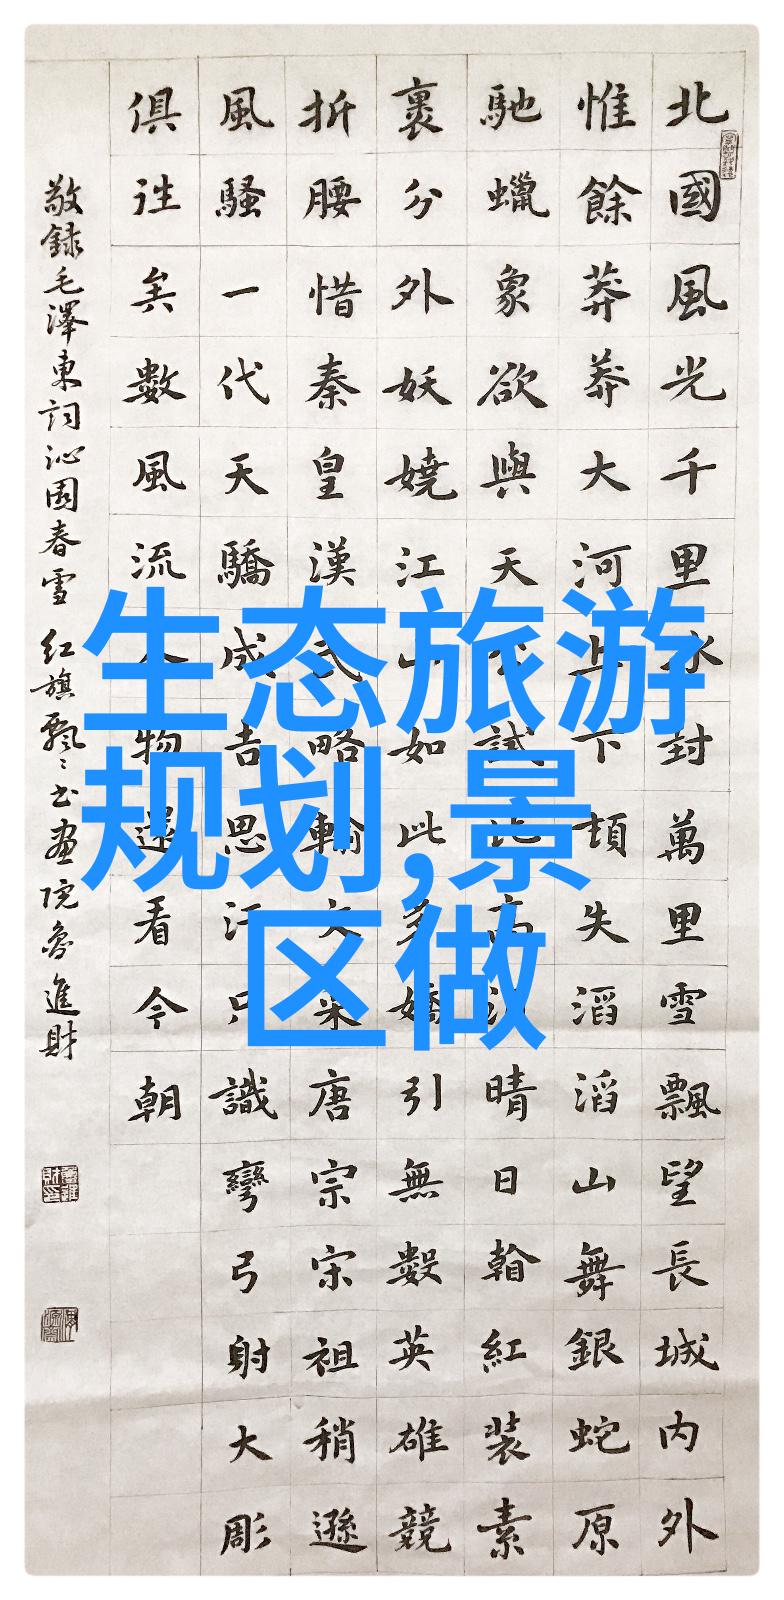 北國風光千里冰封萬里雪飄望長城內外
惟餘莽莽大河上下頓失滔滔山舞銀蛇原
馳蠟象欲與天公試比高晴日翰紅裝素
裹分外妖嬈江山如此多嬌引無數英雄競
折腰惜秦皇漢武略輸文采唐宗宋祖稍遜
風騷一代天驕成吉思汗只識彎弓射大彫
俱往矣數風流人物還看今朝
敬録毛澤東詞沁園春雪 紅旗飄〻书画院魯進財
生态旅游
规划,景
区做